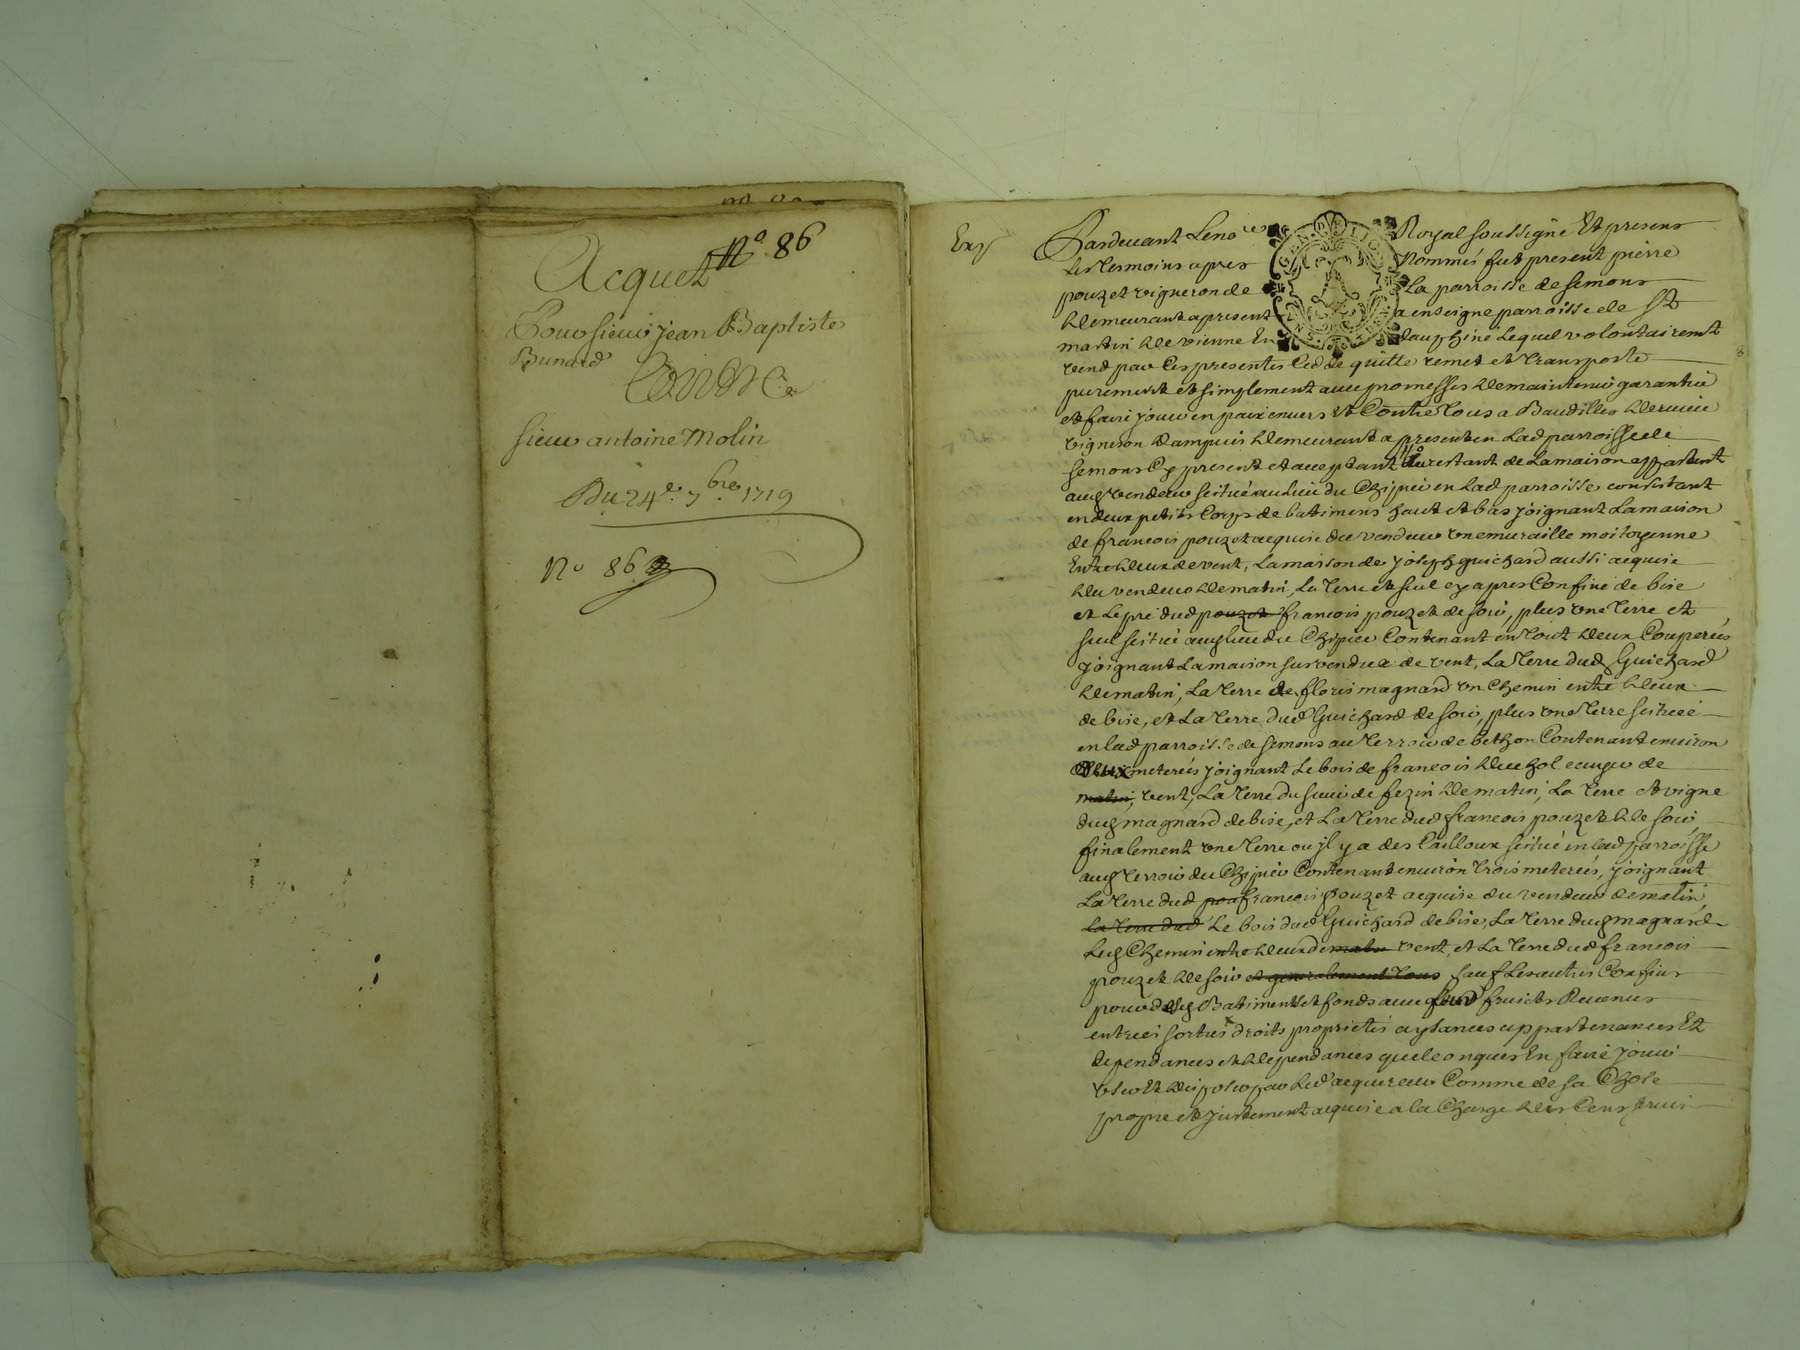 Nº 86
Acquet
Pour sieur jean Baptiste
Bunard
Contre
sieur antoine Molin
Du 24e. 7bre 1719
No 86
Exp
Pardevant Le nore Royal soussigné Et presens
Les tesmoins apres nommés fut present pierre
pouzet vigneron de La parroisse de semons
demeurant apresent a enseigne parroisse de St
martin de vienne En dauphiné Lequel volontairemt
vend par Les presentes Cedde quitte remet et transporte
purement et simplement avec promesses de maintenir garantir
et faire jouir en paix envers et Contre tous a Baudilles
vigneron dampuis demeurant apresent en Lad parroisse de
semons Cy present et acceptant Le restant de La maison appartent
aud vendeur scitué au Lieu du en Lad parroisse consistant
en deux petits Corps de batimens haut et bas joignant La maison
de francois pouzet acquise du vendeur une muraille moitoyenne
Entre deux de vent, La maison de joseph guichard aussi acquise
du vendeur de matin, La terre et sul cy apres Confiné de bise
et Le pré dud pouzet francois pouzet de soir, plus une terre et
sul scitué aud lieu du Contenant en tout deux Couperées
joignant La maison sus vendue de vent, La terre dud Guichard
de matin, La terre de floris magnard un Chemin entre deux
de bise, et La terre dud Guichard de soir, plus une terre scituée
en lad parroisse de semons au terroir de bethon Contenant environ
deux meterées joignant Le bois de francois de
matin, vent, La terre du sieur de fezin de matin, La terre et vigne
dud magnard de bise, et La terre dud francois pouzet de soir
finalement une terre ou jl y a des Cailloux scitué en lad parroisse
aud terroir du Contenant environ trois meterées, joignant
La terre dud pou francois pouzet acquise du vendeur de matin
La terre dud Le bois dud Guichard de bise, La terre dud magnard
Led Chemin entre deux de matin vent, et La terre dud francois
pouzet de soir et generalement tous sauf Les autres Confins
pour desd Batiment et fonds avec leurs fruicts Revenus
entrées sorties droits proprietés aysances appartenances Et
dependances et dependances quelconques En faire jouir
user Et disposer par Led acquereur Comme de sa Chose
propre et justement acquise a la Charge des Cens servis